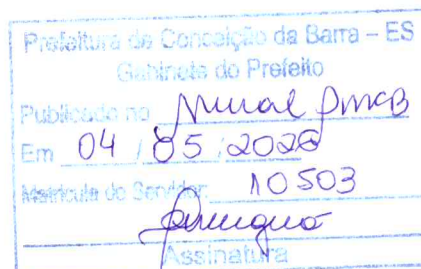 Prefeitura de Conceição da Barra – ES
Gabinete do Prefeito
Publicado no Mural PMCB
Em 04 / 05 / 2026
Matrícula do Servidor: 10503
Assinatura